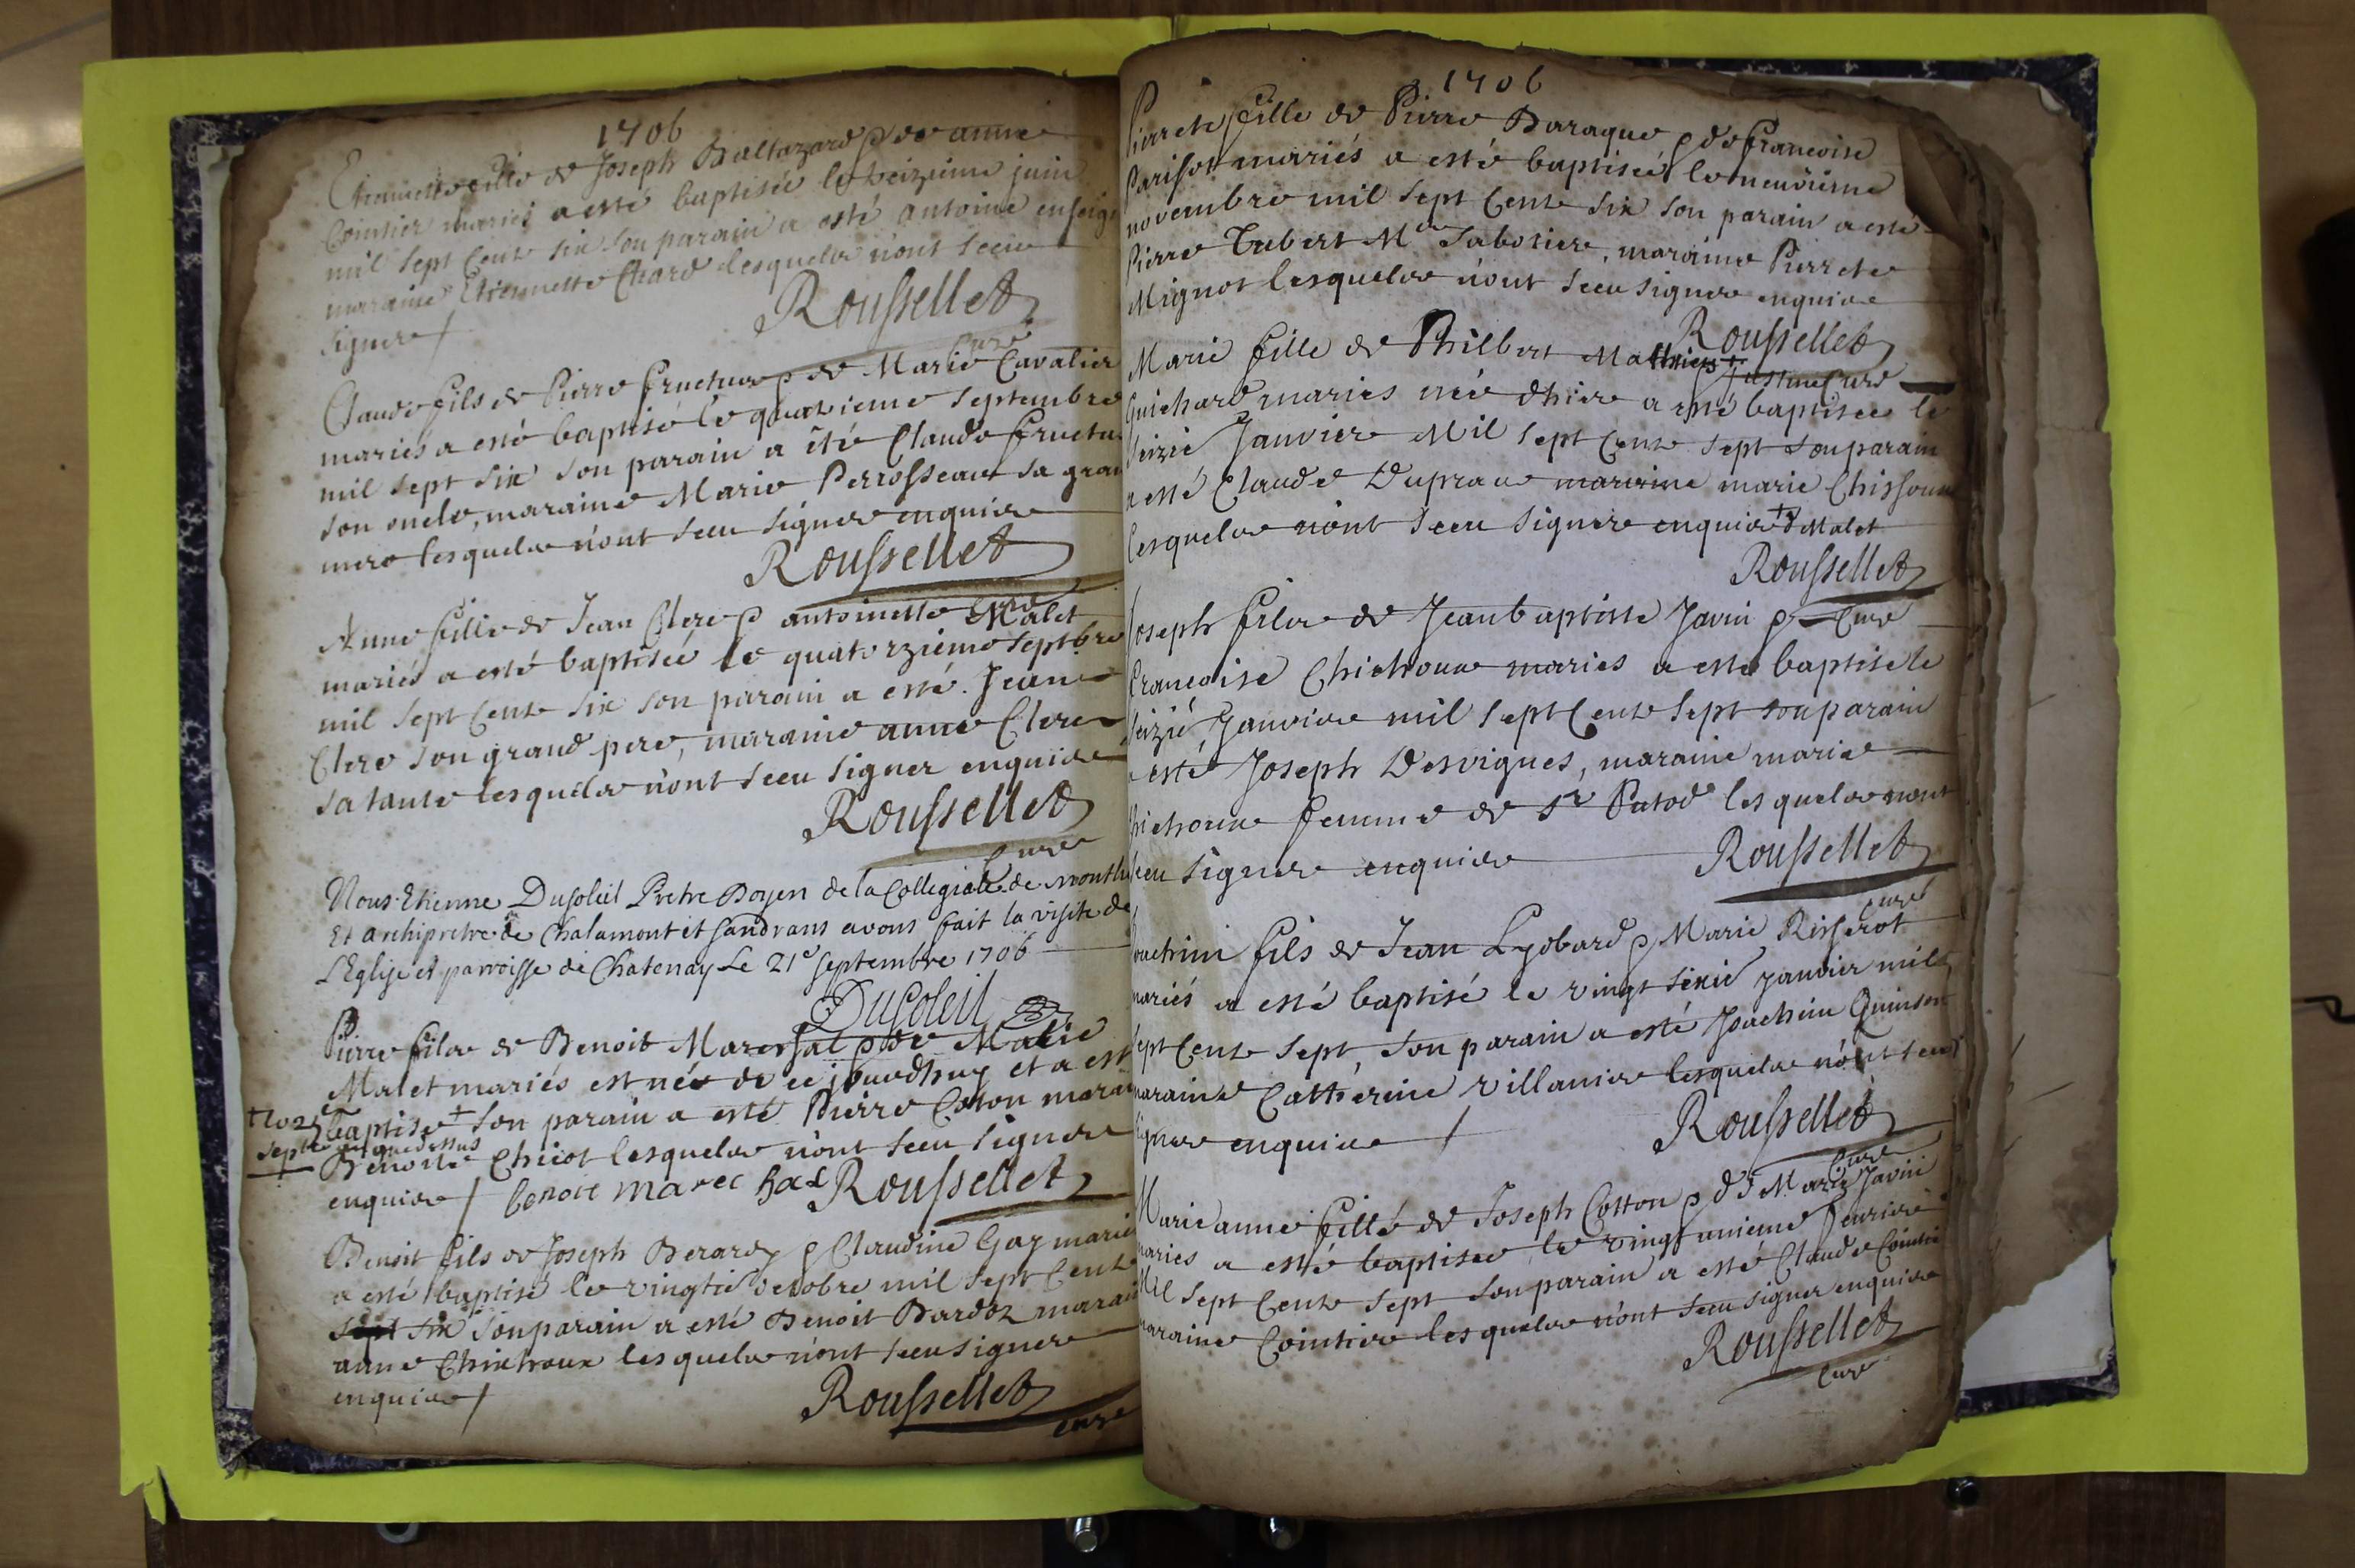 1706
Etiennette fille de Joseph Baltazard & de anne
Cointier mariés a esté baptisée le treizieme juin
mil sept Cents six son parain a esté antoine
maraine Etiennette Chard lesquels n'ont sceu
signer /
Roussellet
Curé
Claude fils de Pierre fructus & de Marie Cavalier
mariés a esté baptisé le quatrieme septembre
mil sept six son parain a été Claude fructu
son oncle, maraine Marie Perrosseau sa gran
mere lesquels n'ont sceu signer enquis
Roussellet
Curé
Anne fille de Jean Clere & antoinette Malet
mariés a esté baptisée le quatorzieme septbre
mil sept Cents six son parain a esté Jean
Clere son grand pere, maraine anne Clere
sa tante lesquels n'ont sceu signer enquis
Roussellet
Curé
Nous Etienne Dusoleil Pretre Doyen de la Collegiale de montlu
Et archipretre de Chalamont et sandrans avons fait la visite de
L'Eglise et parroisse de Chatenay Le 21e septembre 1706
Dusoleil
Pierre fils de Benoit Mareschal & de Marie
Malet mariés est née de ce jourdhuy et a est
+ le 25 baptisé + son parain a esté Pierre Coton marai
septbre que dessus
Benoite Chicot lesquels n'ont sceu signer
enquis / benoit marechal Roussellet
Benoit fils de Joseph Berard & Claudine Gay marié
a esté baptisé le vingtie octobre mil sept Cents
sept six son parain a esté Benoit Bardoz marai
anne Chichoux lesquels n'ont sceu signer
enquis /
Roussellet
curé
1706
Pierrete fille de Pierre Baraque & de francoise
Parison mariés a esté baptisée le neuvieme
novembre mil sept Cents six son parain a esté
Pierre Trebert Md Sabotier, maraine Pierrete
Mignot lesquels n'ont sceu signer enquis
Roussellet
Curé
Marie fille de Philbert Mathieu & Justine
Guichard mariés née d'hier a esté baptisée le
seizie Janvier Mil sept Cents sept son parain
a esté Claude Dupraux maraine marie Chissoux
lesquels n'ont sceu signer enquis + Malet
Roussellet
Curé
Joseph fils de Jean baptiste Javin &
francoise Chichoux mariés a esté baptisé le
seizie Janvier mil sept Cents sept son parain
a esté Joseph Desvignes, maraine marie
hichoux femme de Sr Patod lesquels n'ont
sceu signer enquis
Roussellet
curé
oachim fils de Jean Lyobard & Marie Risserot
mariés a esté baptisé le vingt sixie janvier mil
sept Cents sept, son parain a esté Joachim Quinson
maraine Catherine villanier lesquels n'ont sceu
signer enquis /
Roussellet
Curé
Marie anne fille de Joseph Cotton & de Marie Javin
mariés a esté baptisée le vingt unieme feurier
Mil sept Cents sept son parain a esté Claude Cointie
maraine Cointier lesquels n'ont sceu signer enquis
Roussellet
Curé